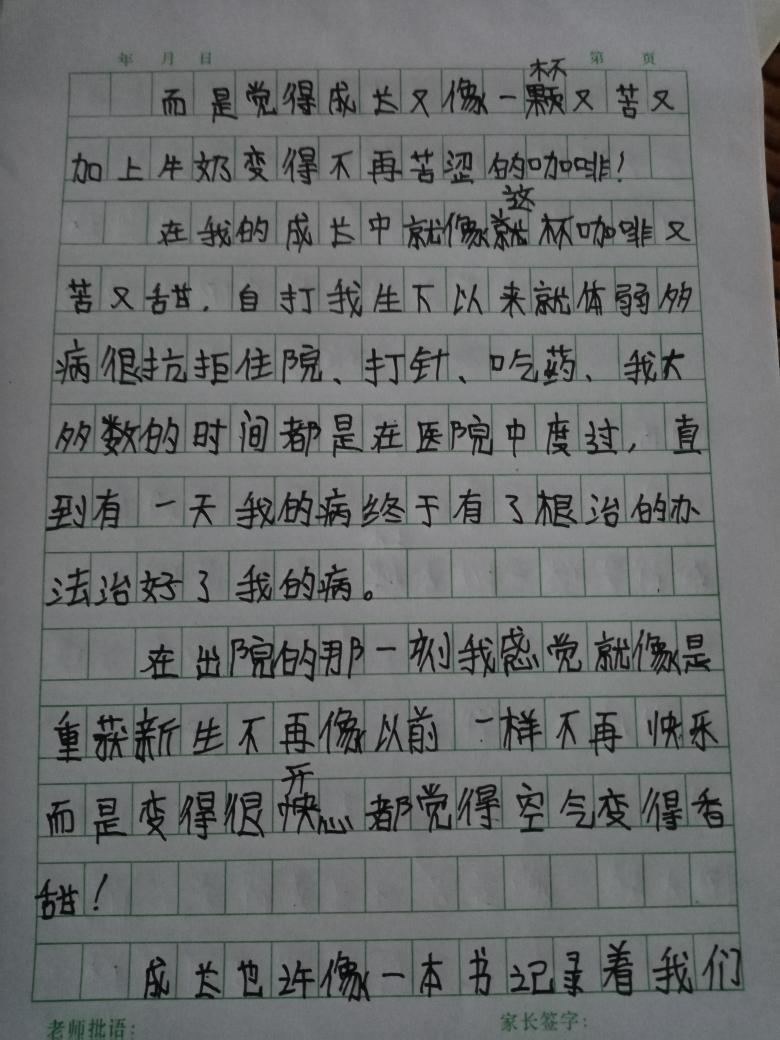 年 月 日 第 页
杯
而是觉得成长又像一颗又苦又
加上牛奶变得不再苦涩的咖啡!
这
在我的成长中就像就杯咖啡又
苦又甜,自打我生下以来就体弱多
病很抗拒住院、打针、吃药、我大
多数的时间都是在医院中度过,直
到有一天我的病终于有了根治的办
法治好了我的病。
在出院的那一刻我感觉就像是
重获新生不再像以前一样不再快乐
开
而是变得很快心都觉得空气变得香
甜!
成长也许像一本书记录着我们
老师批语: 家长签字: